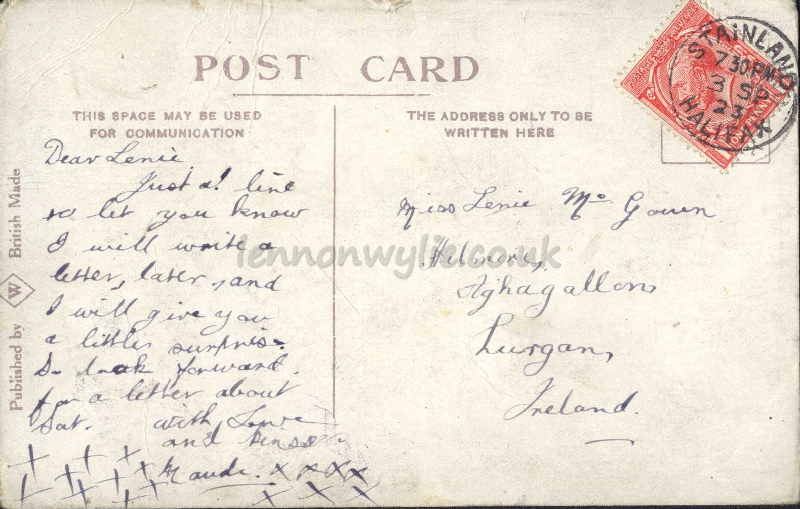 POST CARD
THIS SPACE MAY BE USED
FOR COMMUNICATION
THE ADDRESS ONLY TO BE
WRITTEN HERE
STAINLAND
7 30 PM
3 SP
23
HALIFAX
ONE PENNY
Published by W British Made
Dear Lenie
Just a! line
to let you know
I will write a
letter, later, and
I will give you
a little surprise.
So look forward.
for a letter about
Sat. with Love
and kisses.
Maude. x x x x
Miss Lenie Mc Gown
Aghagallon,
Lurgan,
Ireland.
lennonwylie.co.uk